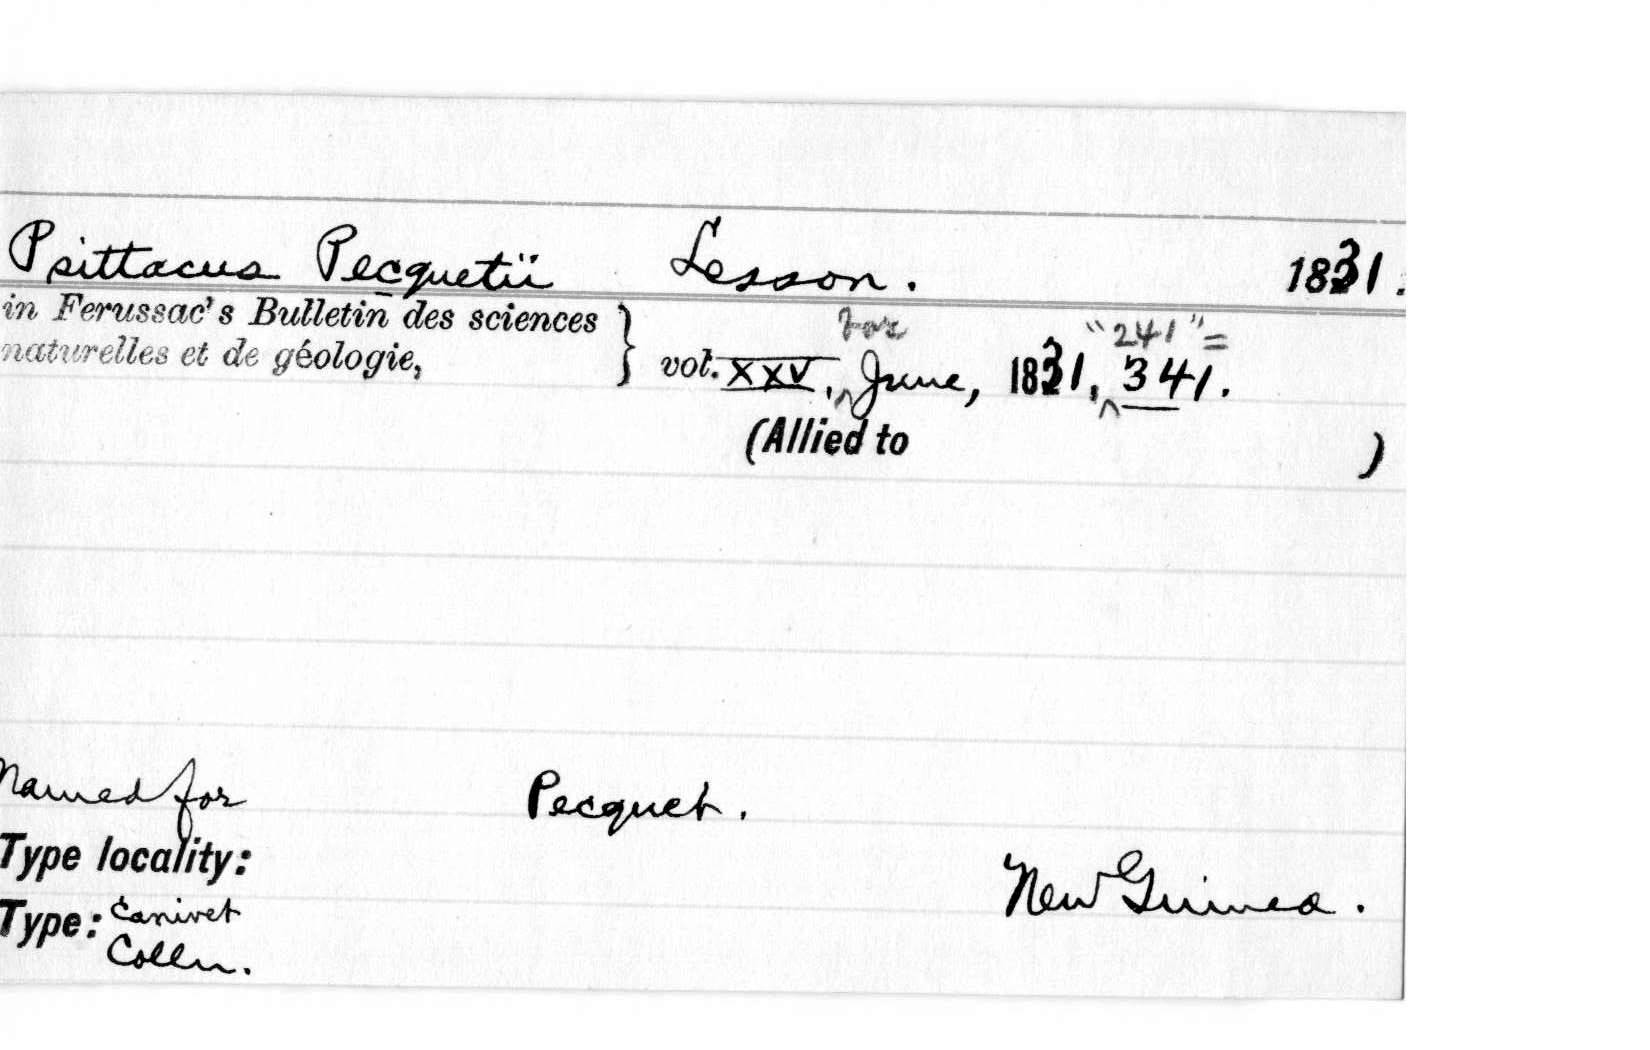 Psittacus Pecquetii Lesson. 1831.
in Ferussac's Bulletin des sciences
naturelles et de géologie,
for "241" =
vol. XXV, ^ June, 1831, ^ 341.
(Allied to )
Named for Pecquet.
Type locality:
New Guinea.
Type: Canivet
Colln.